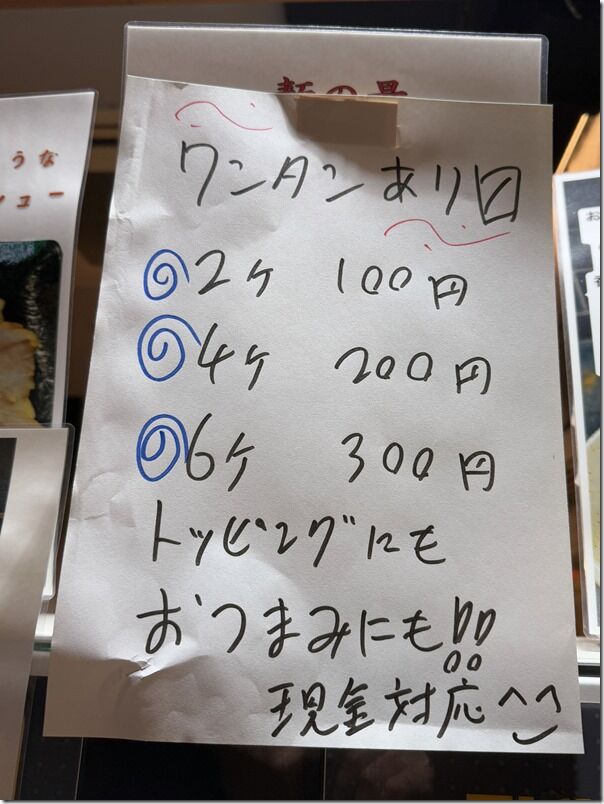 ワンタンあり〼
2ケ 100円
4ケ 200円
6ケ 300円
トッピングにも
おつまみにも!!
現金対応^^
うな
ュー
お